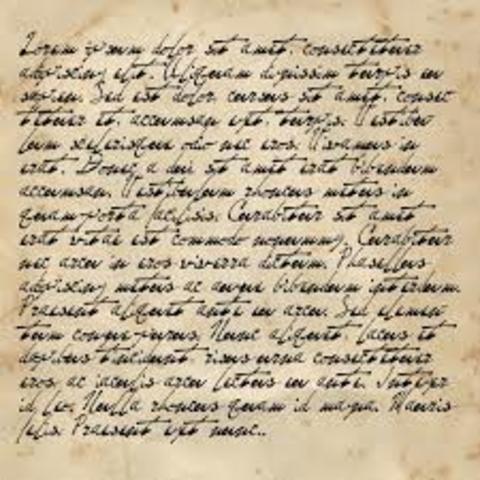 Lorem ipsum dolor sit amet, consectetuer
adipiscing elit. Aliquam dignissim turpis eu
sapien. Sed est dolor, cursus sit amet, consec
tetuer et, accumsan eget, turpis. Vestibu
lum scelerisque odio nec eros. Vivamus in
erat. Donec a dui sit amet erat bibendum
accumsan. Vestibulum rhoncus metus in
quam porta facilisis. Curabitur sit amet
erat vitae est commodo nonummy. Curabitur
nec arcu in eros viverra dictum. Phasellus
adipiscing metus ac augue bibendum interdum.
Praesent aliquet ante eu arcu. Sed elemen
tum congue purus. Nunc aliquet, lacus et
dapibus tincidunt, risus urna consectetuer
eros, ac iaculis arcu lectus eu ante. Integer
id leo. Nulla rhoncus quam id magna. Mauris
felis. Praesent eget nunc..